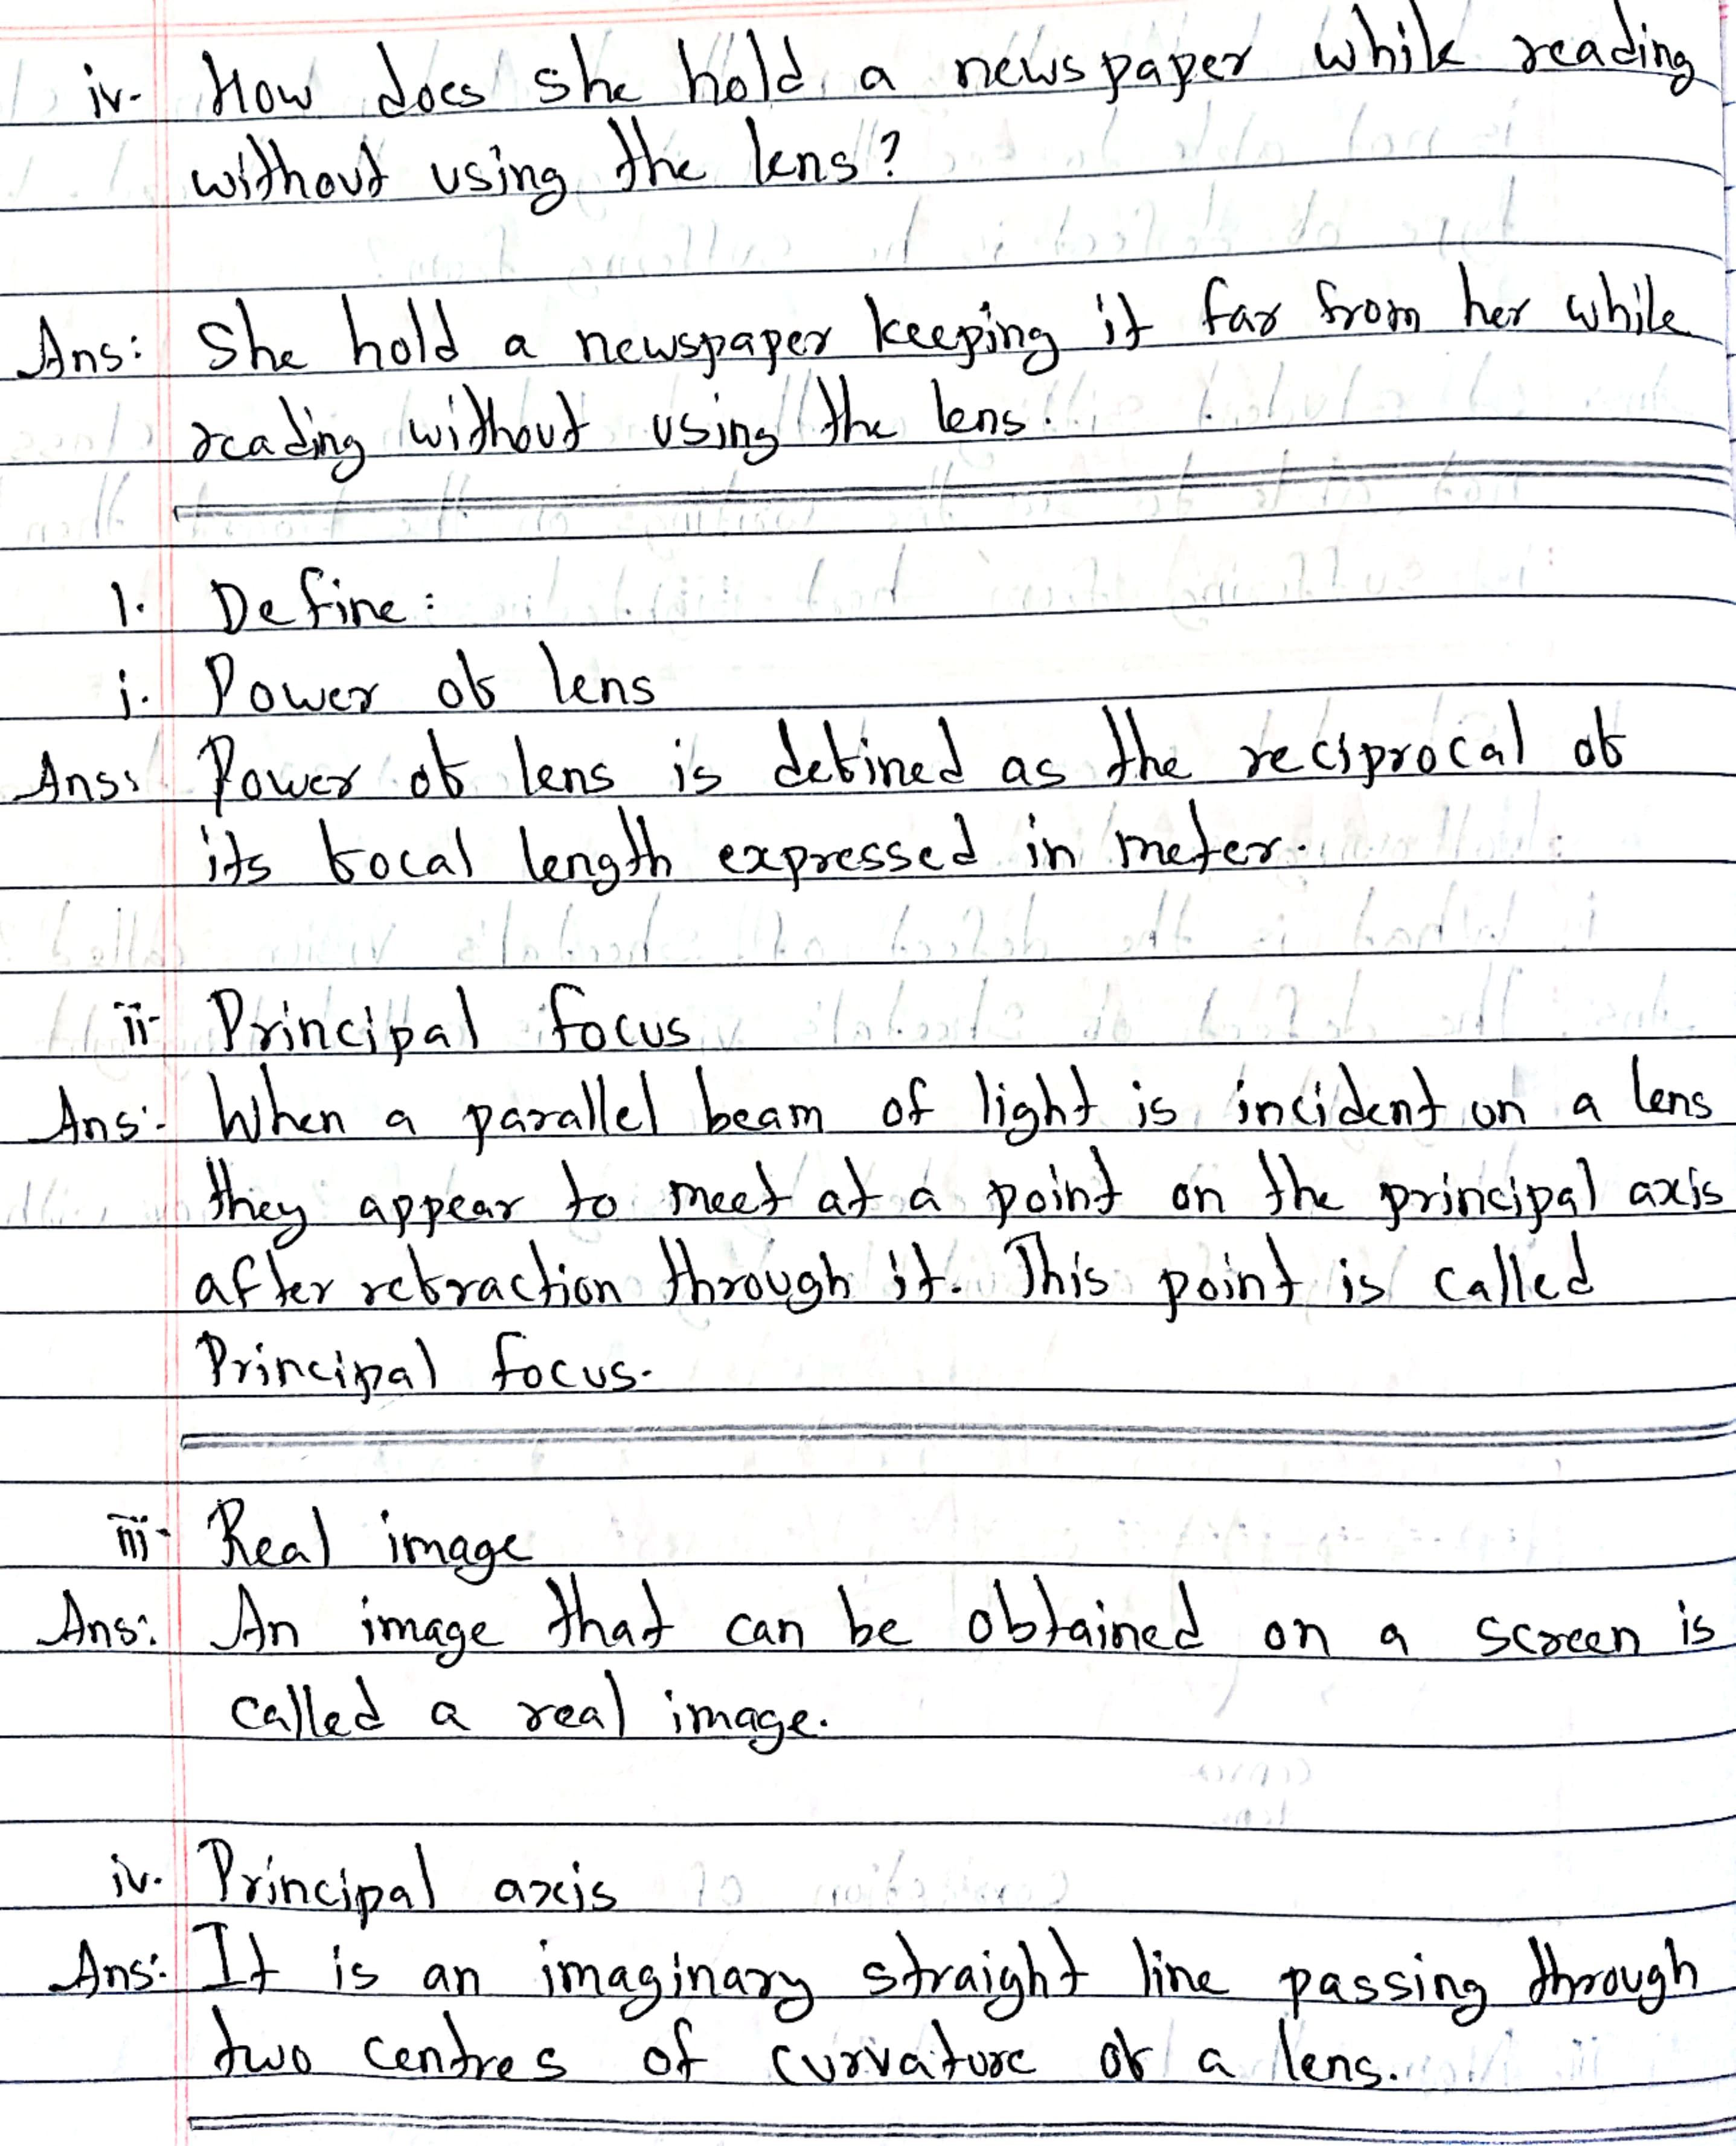 iv. How does she hold a newspaper while reading
without using the lens?
Ans: She hold a newspaper keeping it far from her while
reading without using the lens.
1. Define:
i. Power of lens
Ans: Power of lens is defined as the reciprocal of
its focal length expressed in meter.
ii. Principal focus
Ans: When a parallel beam of light is incident on a lens
they appear to meet at a point on the principal axis
after refraction through it. This point is called
Principal focus.
iii. Real image
Ans: An image that can be obtained on a screen is
called a real image.
iv. Principal axis
Ans: It is an imaginary straight line passing through
two centres of curvature of a lens.